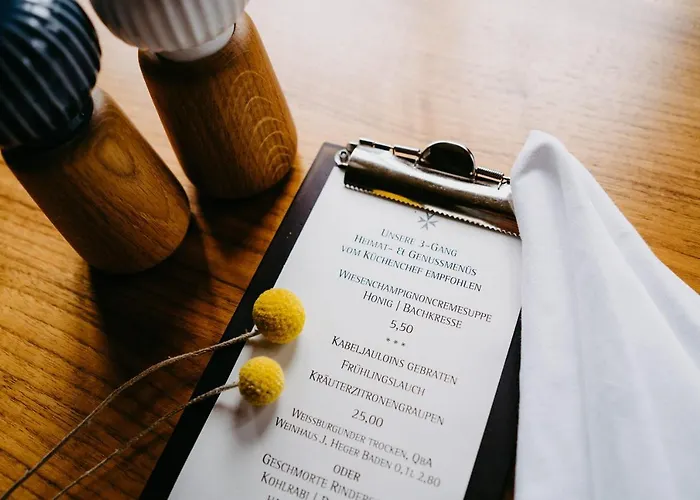 Unsere 3-Gang
Heimat- & Genussmenüs
vom Küchenchef empfohlen
Wiesenchampignoncremesuppe
Honig | Bachkresse
5,50
***
Kabeljauloins gebraten
Frühlingslauch
Kräuterzitronengraupen
25,00
Weissburgunder trocken, QbA
Weinhaus J. Heger Baden 0,1l 2,80
oder
Geschmorte Rinders
Kohlrabi |